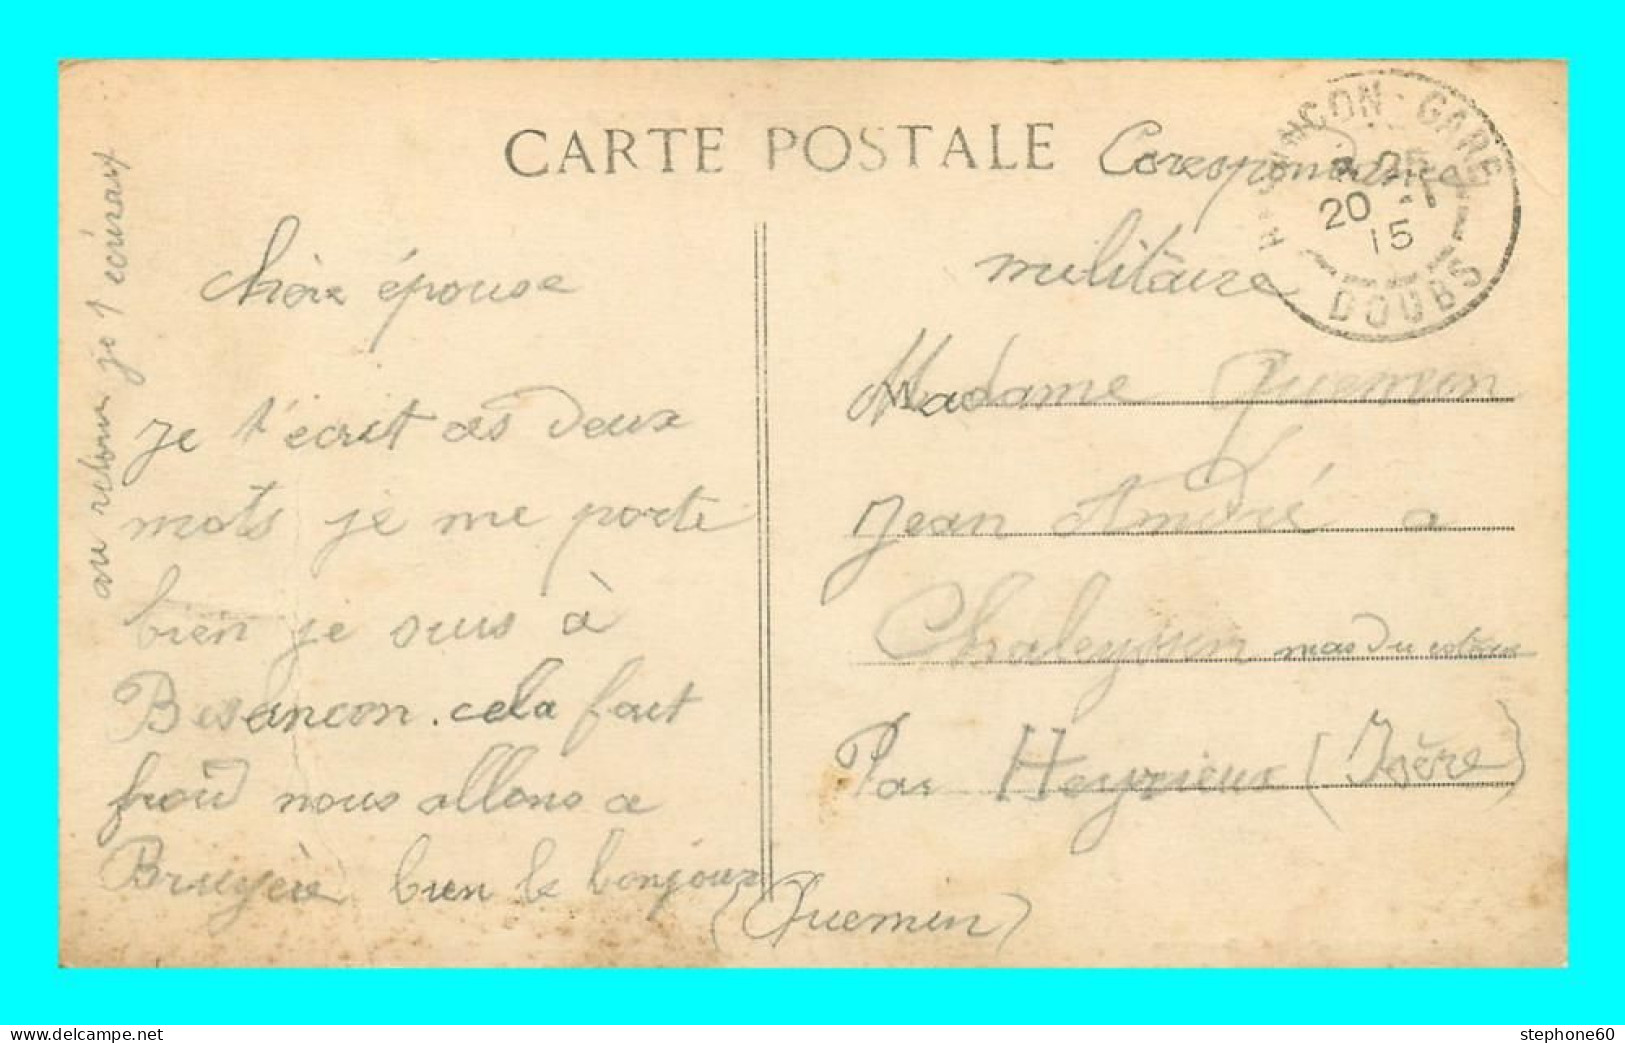 CARTE POSTALE
Corespondance
militaire
BESANCON - GARE
20 -1
15
DOUBS
chère épouse
je t'écrit ces deux
mots je me porte
bien je suis à
Besancon. cela fait
froid nous allons a
Bruyère bien le bonjour
(Quemin)
au retour je t écirax
Madame Quemin
Jean André a
Chaleyssin mas du
Par Heyrieux (Isère)
www.delcampe.net
stephone60